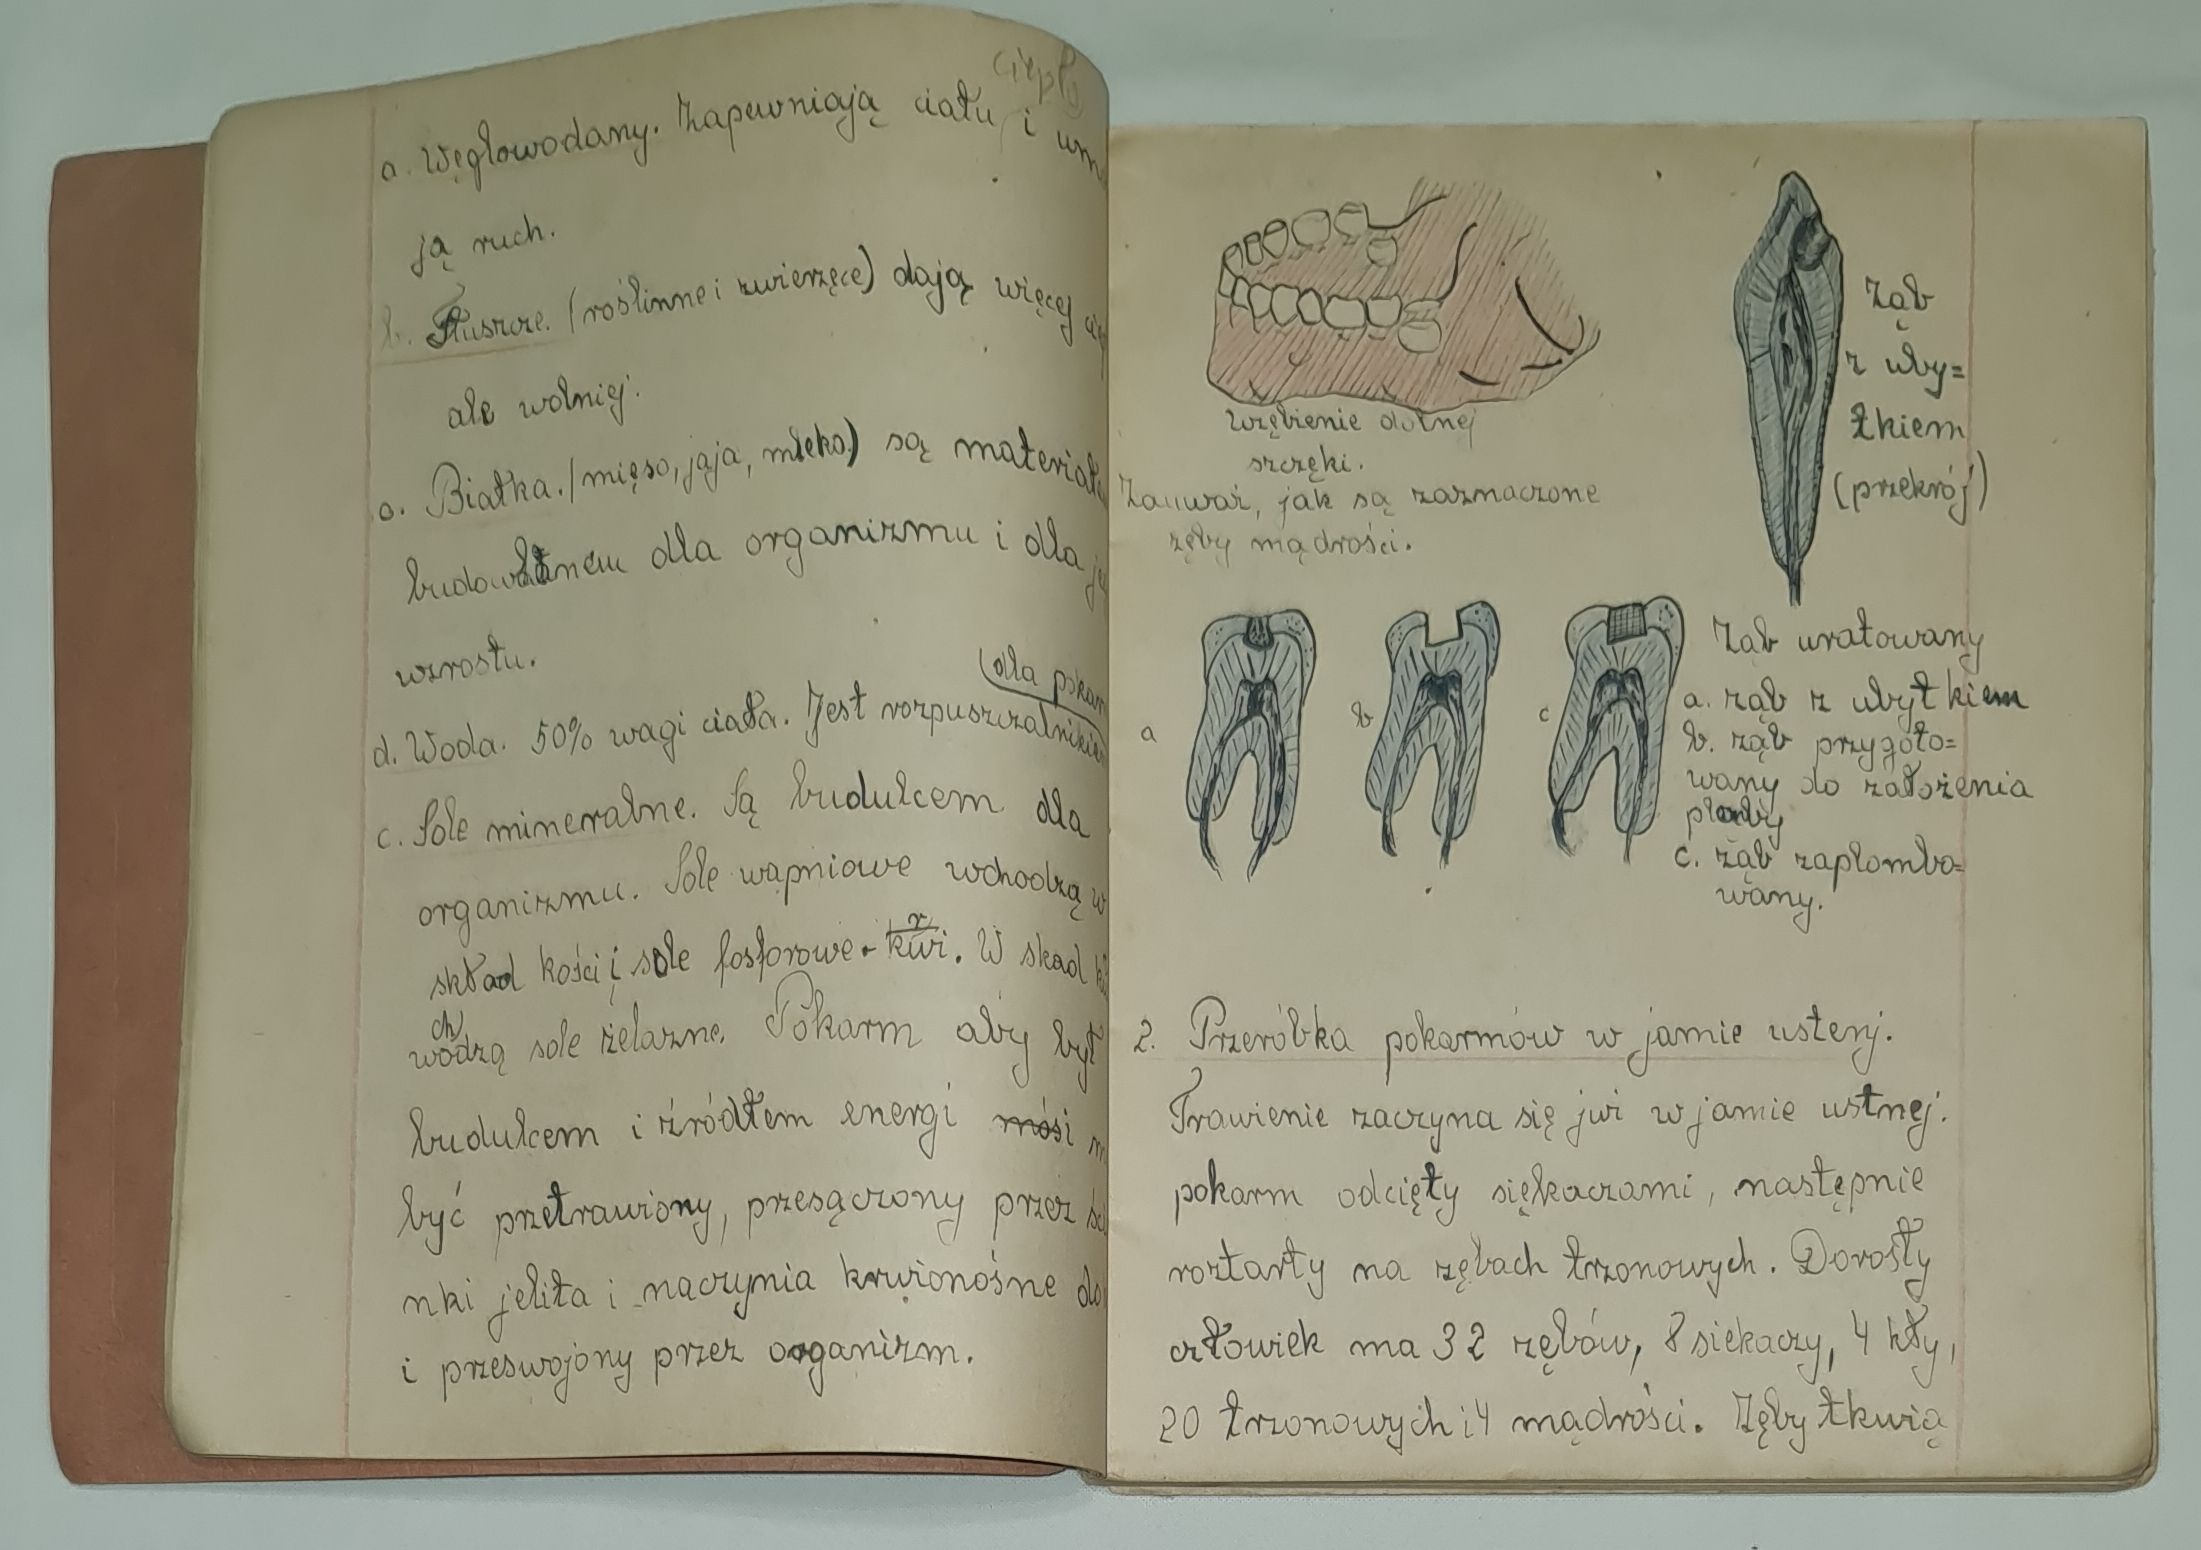 ciepły
a. Węglowodany. Zapewniają ciału i um
ją ruch.
b. Tłuszcze. (roślinne i zwierzęce) dają więcej
ale wolniej.
o. Białka. (mięso, jaja, mleko) są materiał
budowlanem dla organizmu i dla
wzrostu.
(dla pokar
d. Woda. 50% wagi ciała. Jest rozpuszczalnikiem
c. Sole mineralne. Są budulcem dla
organizmu. Sole wapniowe wchodzą w
skład kości i sole fosforowe - krwi. W skad
chwodzą sole żelazne. Pokarm aby był
budulcem i źródłem energi mósi
być przetrawiony, przesączony przez
nki jelita i naczynia krwionośne do
i przeswojony przez organizm.
Uzębienie dolnej
szczęki.
Zauważ, jak są zaznaczone
zęby mądrości.
Ząb
z uby=
tkiem
(przekrój)
a
b
c
Ząb uratowany
a. ząb z ubytkiem
b. ząb przygoto=
wany do założenia
plomby
c. ząb zaplombo=
wany.
2. Przeróbka pokarmów w jamie ustenj.
Trawienie zaczyna się jui w jamie ustnej.
pokarm odcięty siękaczami, następnie
roztarty na zębach trzonowych. Dorosły
człowiek ma 32 zębów, 8 siekaczy, 4 kły,
20 trzonowych i 4 mądrości. Zęby tkwią